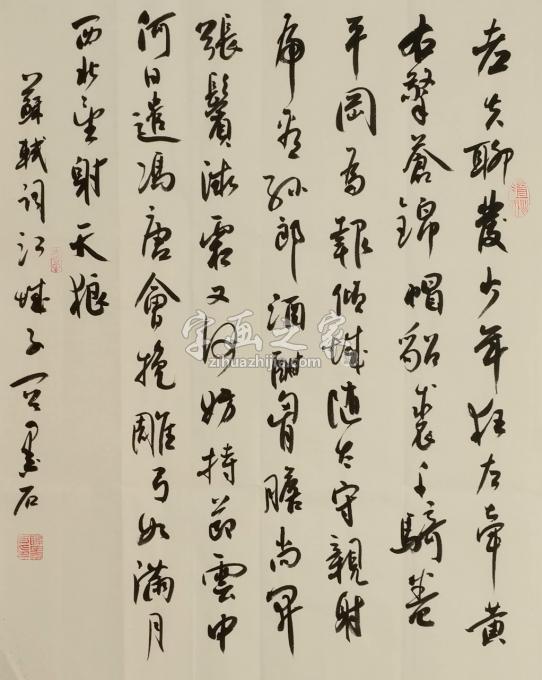 老夫聊發少年狂左牽黃
右擎蒼錦帽貂裘千騎卷
平岡為報傾城隨太守親射
虎看孫郎酒酣胷膽尚開
張鬢微霜又何妨持節雲中
何日遣馮唐會挽雕弓如滿月
西北望射天狼
蘇軾詞江城子墨石
字画之家
zihuazhijia.com